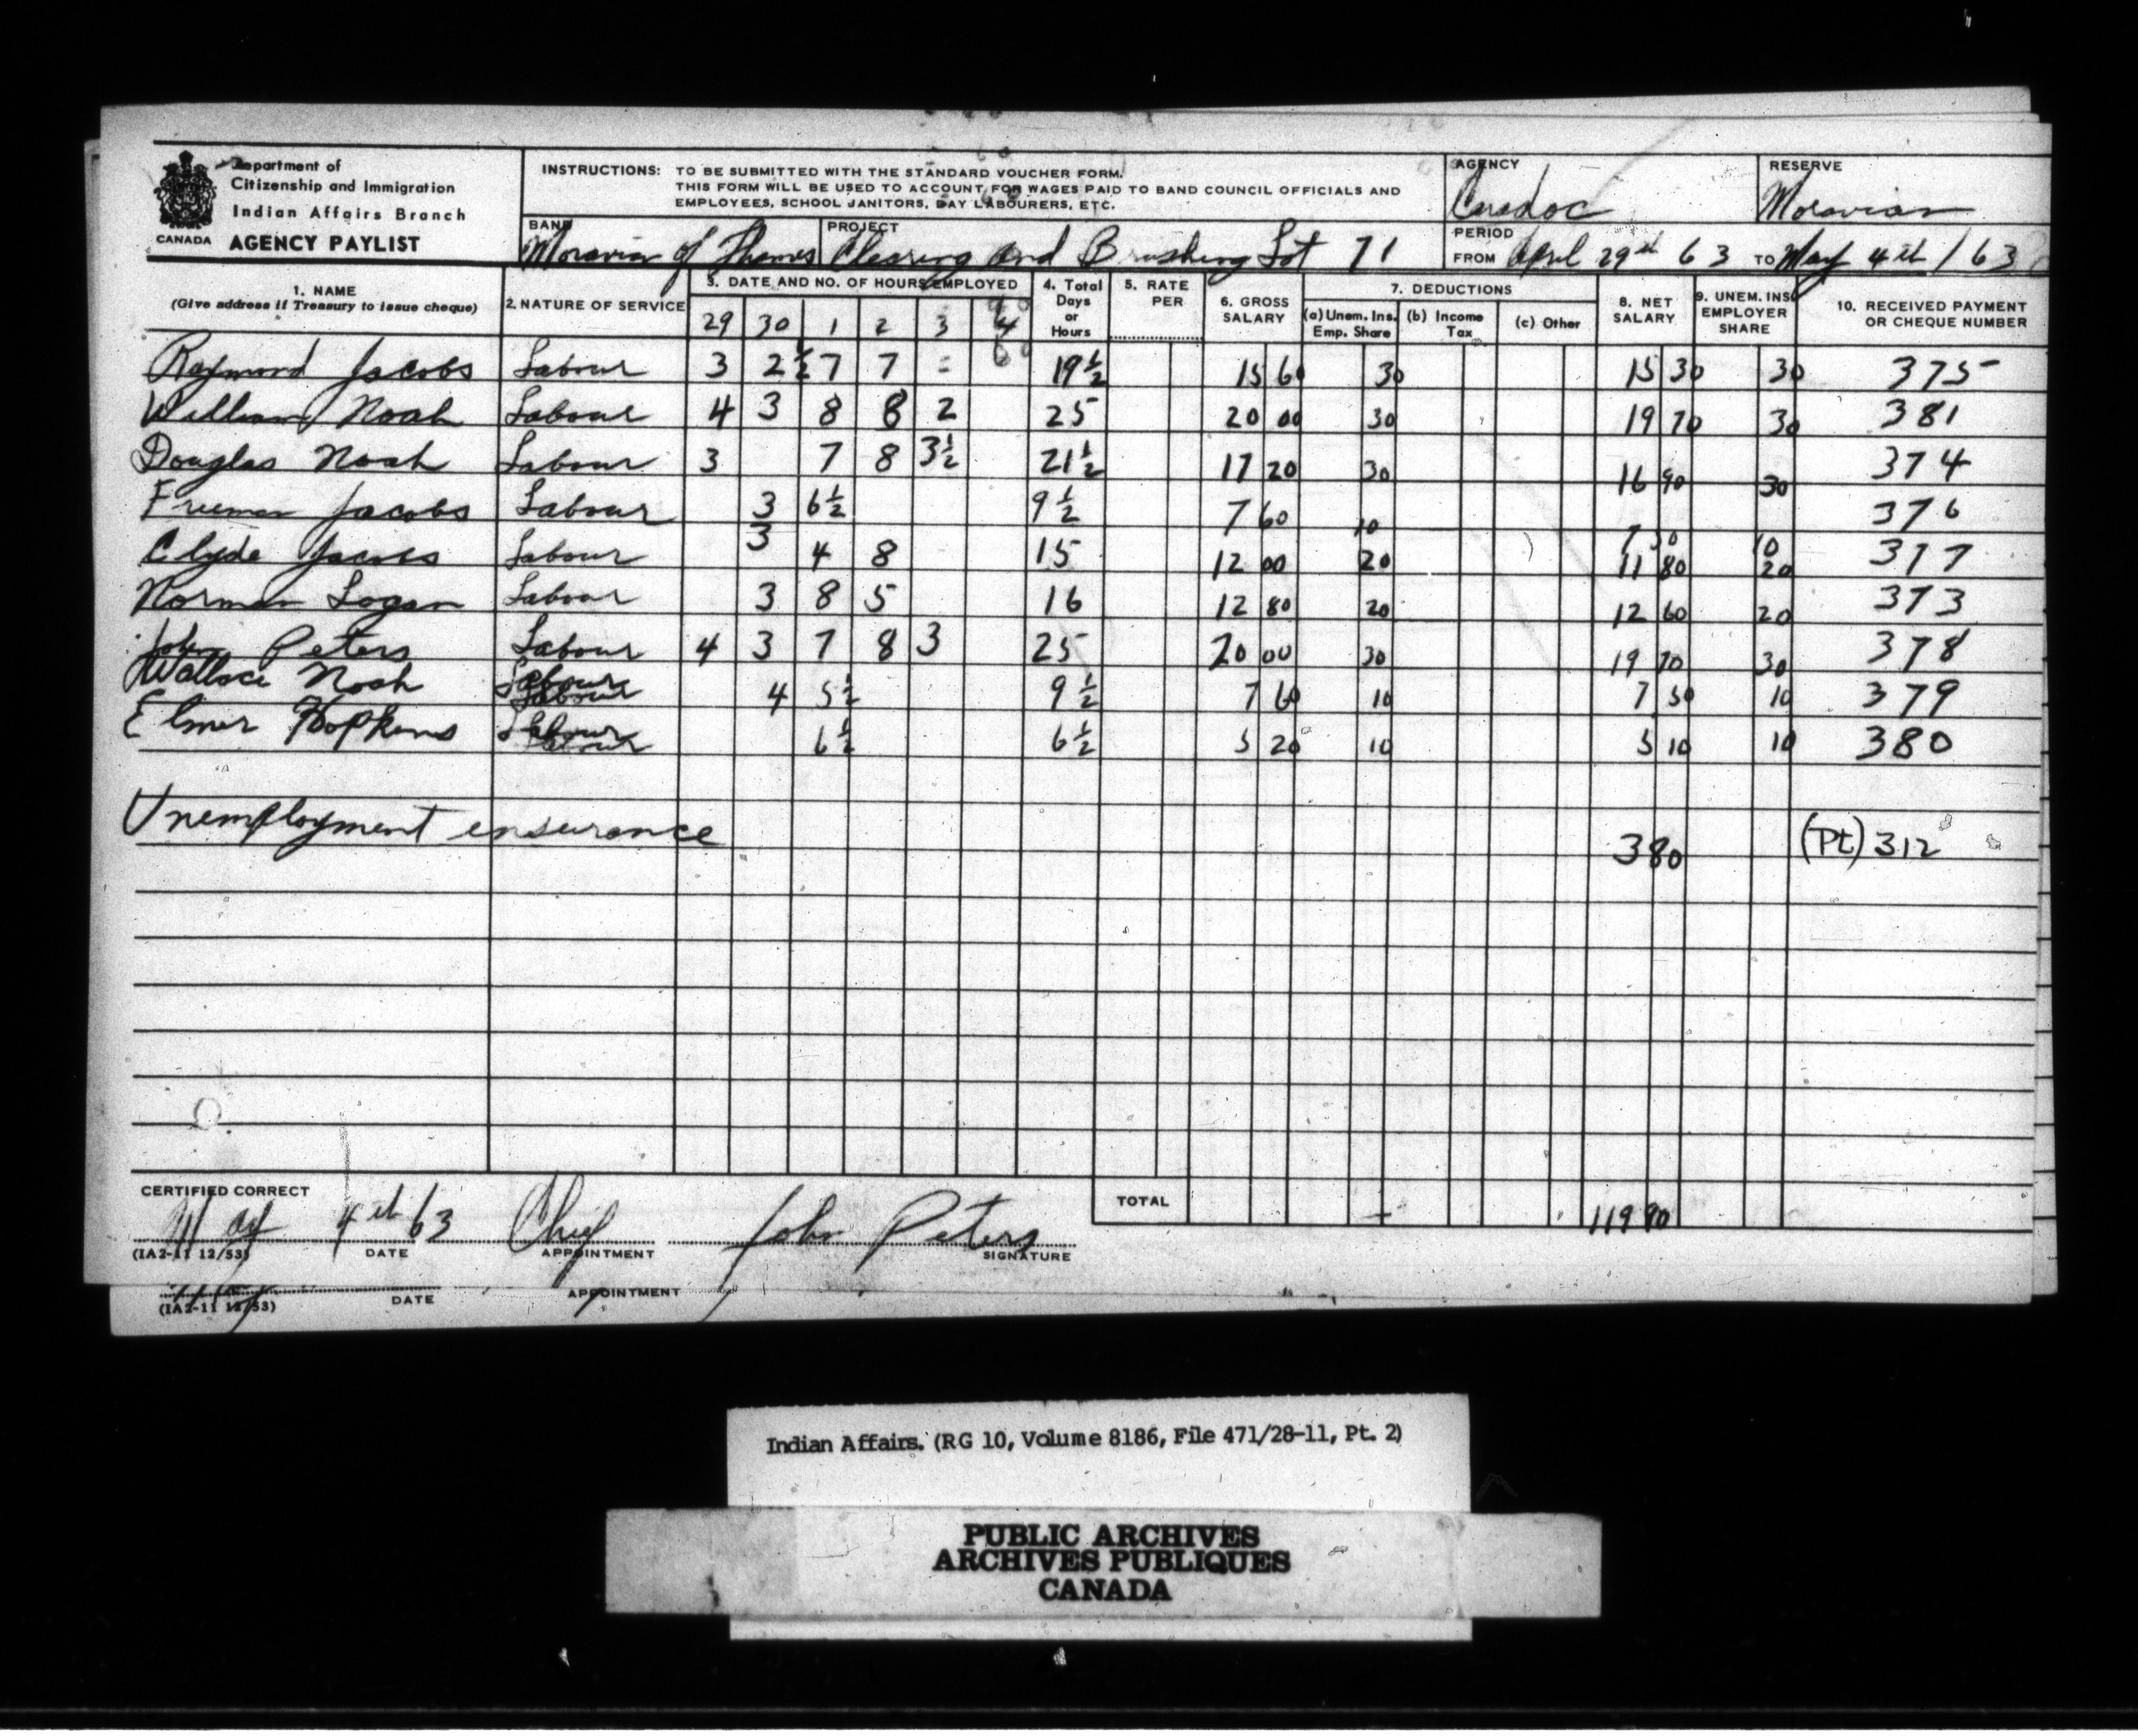 Department of
Citizenship and Immigration
Indian Affairs Branch
CANADA AGENCY PAYLIST
INSTRUCTIONS: TO BE SUBMITTED WITH THE STANDARD VOUCHER FORM.
THIS FORM WILL BE USED TO ACCOUNT FOR WAGES PAID TO BAND COUNCIL OFFICIALS AND
EMPLOYEES, SCHOOL JANITORS, DAY LABOURERS, ETC.
AGENCY
Caradoc
RESERVE
Moravian
BAND
Moravian of Thames
PROJECT
Clearing and Brushing Lot 71
PERIOD
FROM April 29th 63 TO May 4th / 63
1. NAME
(Give address if Treasury to issue cheque)
2. NATURE OF SERVICE
3. DATE AND NO. OF HOURS EMPLOYED
29 30 1 2 3 4
4. Total
Days
or
Hours
5. RATE
PER
6. GROSS
SALARY
7. DEDUCTIONS
(a) Unem. Ins.
Emp. Share
(b) Income
Tax
(c) Other
8. NET
SALARY
9. UNEM. INS.
EMPLOYER
SHARE
10. RECEIVED PAYMENT
OR CHEQUE NUMBER
Raymond Jacobs Labour 3 2½ 7 7 19½ 15 60 30 15 30 30 375
William Noah Labour 4 3 8 8 2 25 20 00 30 19 70 30 381
Douglas Noah Labour 3 7 8 3½ 21½ 17 20 30 16 90 30 374
Freeman Jacobs Labour 3 6½ 9½ 7 60 10 7 50 10 376
Clyde Jacobs Labour 3 4 8 15 12 00 20 11 80 20 377
Norman Logan Labour 3 8 5 16 12 80 20 12 60 20 373
John Peters Labour 4 3 7 8 3 25 20 00 30 19 70 30 378
Wallace Noah Labour 4 5½ 9½ 7 60 10 7 50 10 379
Elmer Hopkins Labour 6½ 6½ 5 20 10 5 10 10 380
Unemployment ensurance 3 80 (Pt) 312
CERTIFIED CORRECT
May 4th 63 Chief John Peters
(IA2-11 12/53) DATE APPOINTMENT SIGNATURE
TOTAL 119 90
(IA2-11 12/53) DATE APPOINTMENT
Indian Affairs. (RG 10, Volume 8186, File 471/28-11, Pt. 2)
PUBLIC ARCHIVES
ARCHIVES PUBLIQUES
CANADA